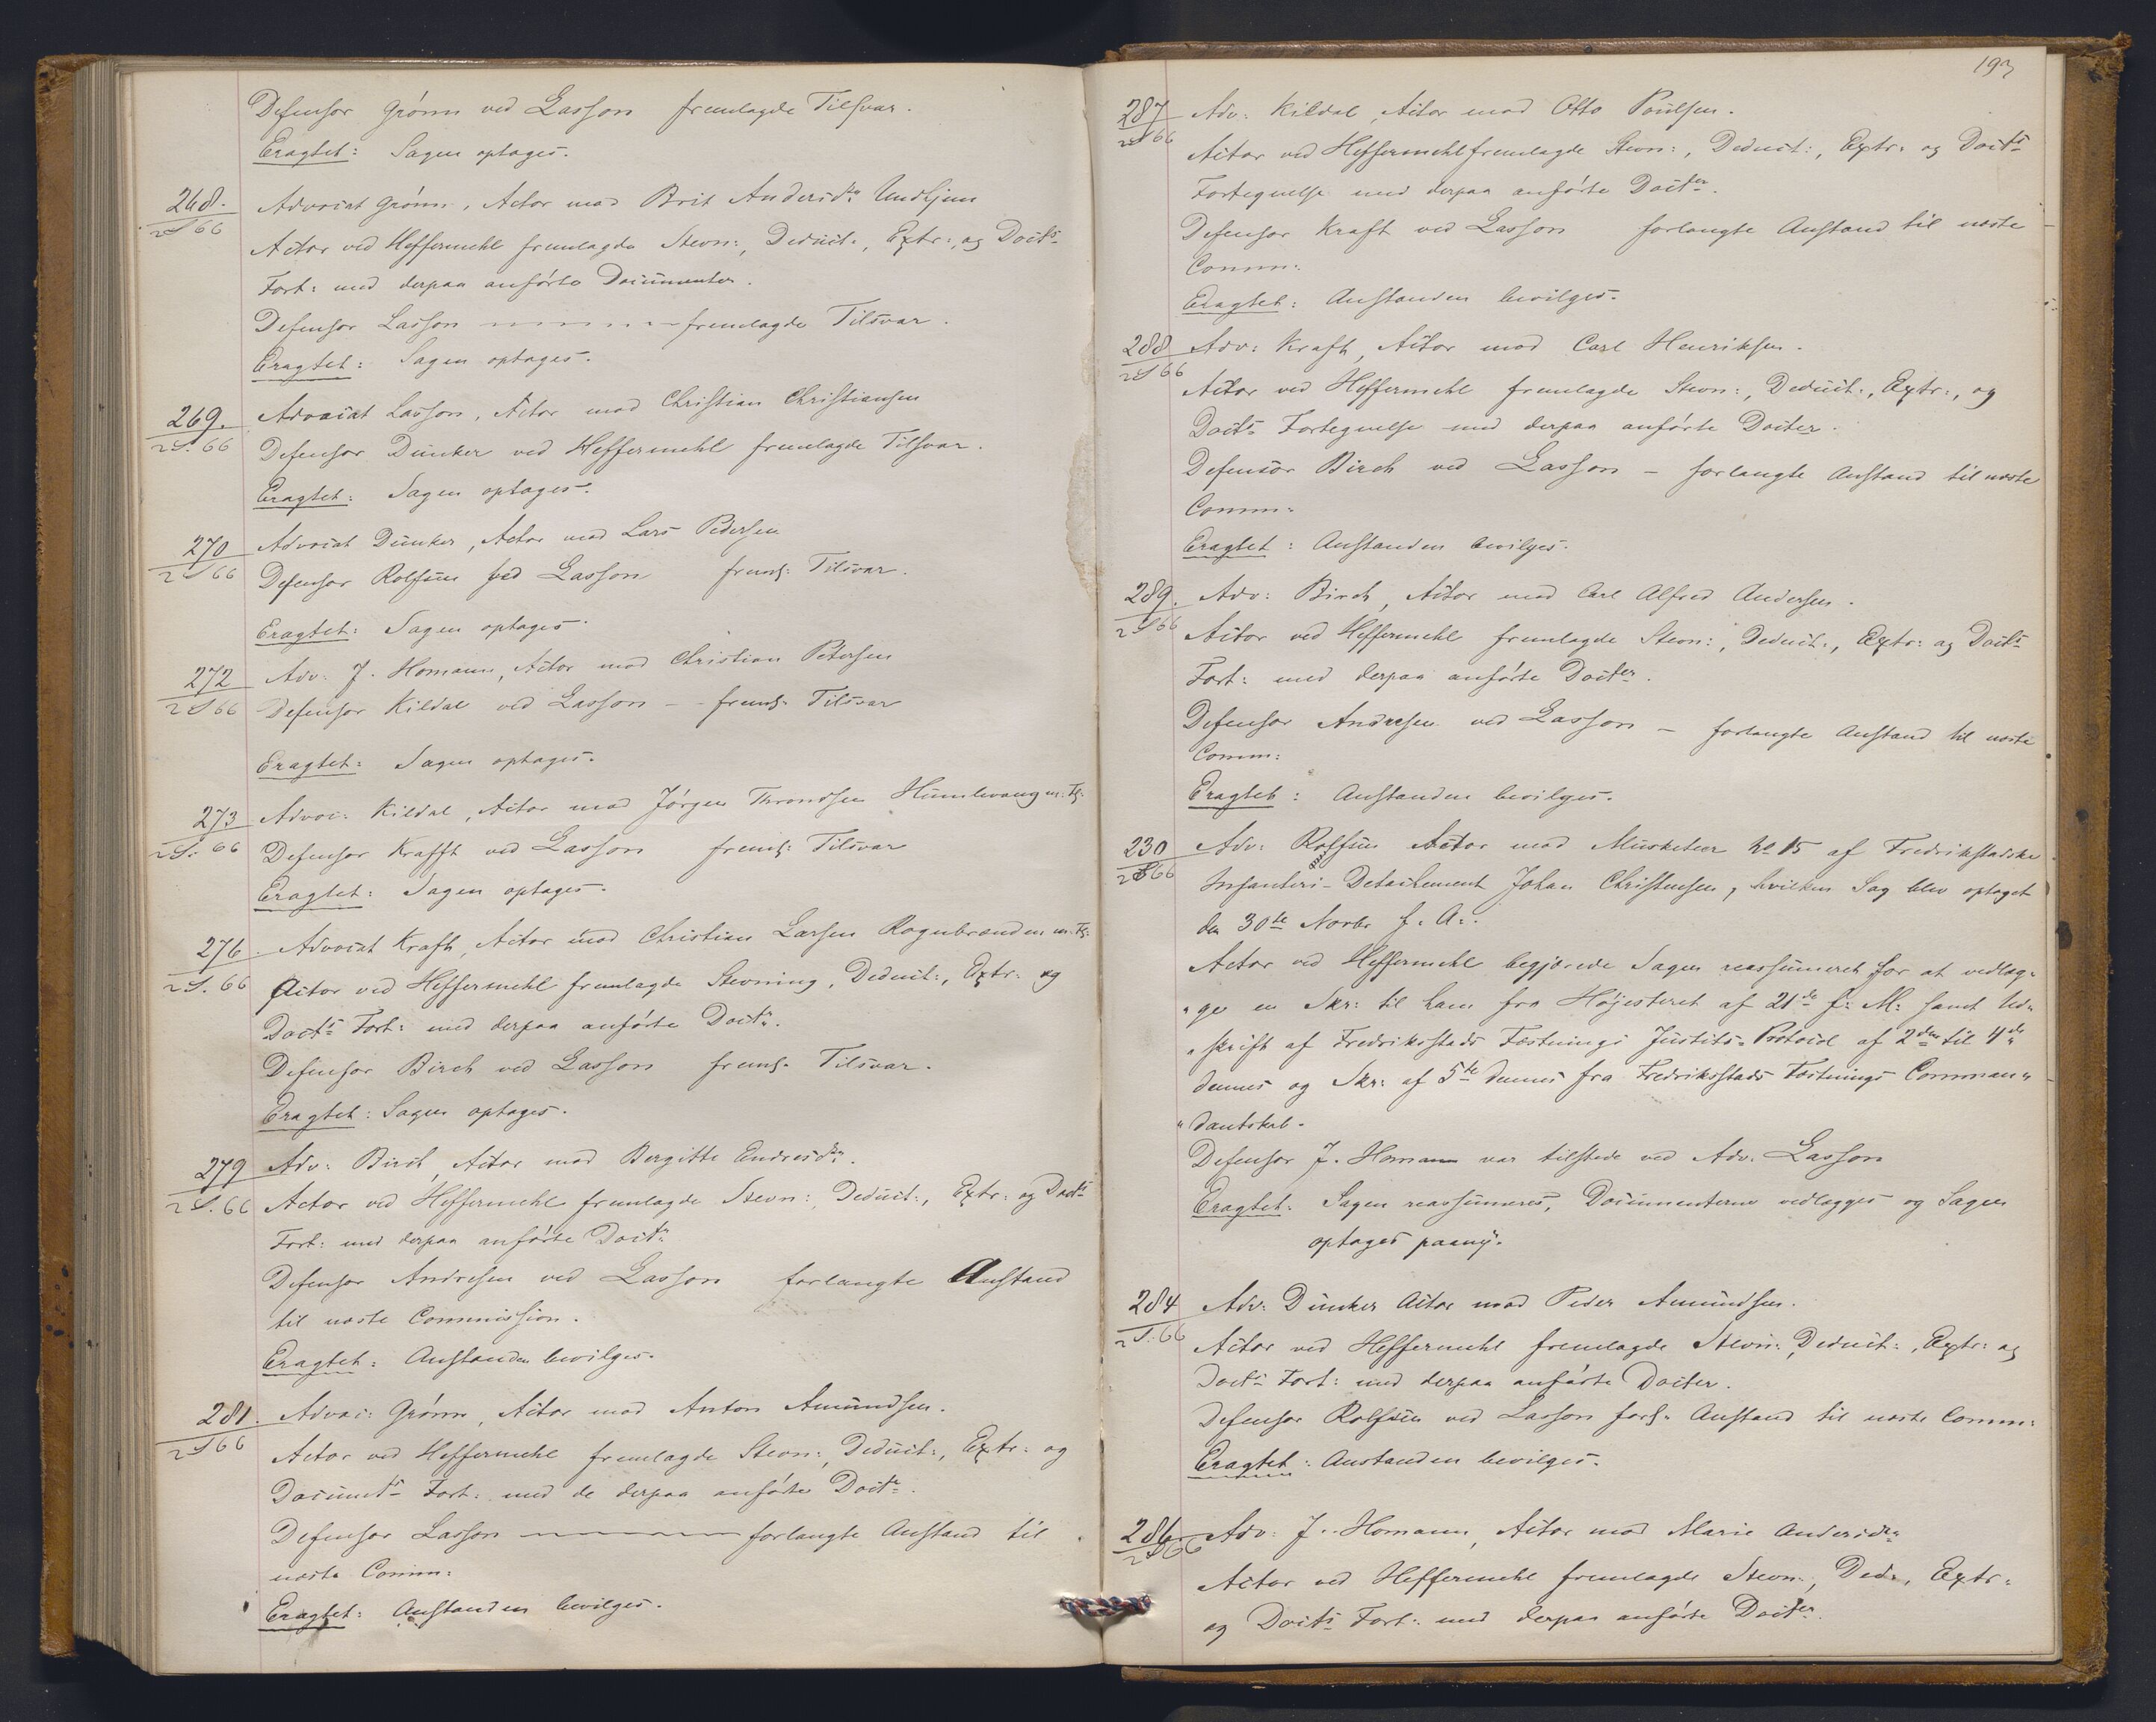 Defensor Grönn ved Lasson fremlagde Tilsvar.
Eragtet: Sagen optages.
268. Advocat Grönn, Actor mod Brit Andersdr Undljem
2 S 66
Actor ved Heffermehl fremlagde Stevn:, Deduct:, Extr:, og Docts
Fort: med derpaa anförte Documenter.
Defensor Lasson fremlagde Tilsvar.
Eragtet: Sagen optages.
269. Advocat Lasson, Actor mod Christian Christiansen
2 S. 66 Defensor Dunker ved Heffermehl fremlagde Tilsvar.
Eragtet: Sagen optages.
270 Advocat Dunker, Actor mod Lars Pedersen
2 S 66 Defensor Rolfsen ved Lasson freml: Tilsvar.
Eragtet: Sagen optages.
272 Adv: J. Homann, Actor mod Christian Petersen
2 S 66 Defensor Kildal ved Lasson - freml: Tilsvar
Eragtet: Sagen optages.
273 Advoc: Kildal, Actor mod Jörgen Throndsen Humlevang m: Fl:
2 S. 66 Defensor Krafft ved Lasson freml: Tilsvar
Eragtet: Sagen optages.
276. Advocat Kraft, Actor mod Christian Larsen Rognbrænden m: Fl:
2 S. 66 Actor ved Heffermehl fremlagde Stevning, Deduct:, Extr: og
Docts Fort: med derpaa anförte Doctr.
Defensor Birch ved Lasson freml: Tilsvar.
Eragtet: Sagen optages.
279 Adv: Birch, Actor mod Bergitte Endresdr.
2 S. 66 Actor ved Heffermehl fremlagde Stevn:, Deduct:, Extr: og Docts
Fort: med derpaa anförte Doctr
Defensor Andresen ved Lasson forlangte Anstand
til næste Commission.
Eragtet: Anstanden bevilges.
281. Advoc: Grönn, Actor mod Anton Amundsen.
2 S 66 Actor ved Heffermehl fremlagde Stevn:, Deduct:, Extr: og
Documts Fort: med de derpaa anförte Doctr.
Defensor Lasson forlangte Anstand til
næste Comm:
Eragtet: Anstanden bevilges.
193
287 Adv: Kildal, Actor mod Otto Poulsen.
2 S 66 Actor ved Heffermehl fremlagde Stevn:, Deduct:, Extr: og Docts
Fortegnelse med derpaa anförte Docter.
Defensor Kraft ved Lasson forlangte Anstand til næste
Comm:
Eragtet: Anstanden bevilges.
288 Adv: Kraft, Actor mod Carl Henriksen.
2 S 66 Actor ved Heffermehl fremlagde Stevn:, Deduct:, Extr:, og
Docts Fortegnelse med derpaa anförte Docter.
Defensor Birch ved Lasson - forlangte Anstand til næste
Comm:
Eragtet: Anstanden bevilges.
289. Adv: Birch, Actor mod Carl Alfred Andersen.
2 S 66 Actor ved Heffermehl fremlagde Stevn:, Deduct:, Extr: og Docts
Fort: med derpaa anförte Docter.
Defensor Andresen ved Lasson - forlangte Anstand til næste
Comm:
Eragtet: Anstanden bevilges.
230 Adv: Rolfsen Actor mod Musketeer No 15 af Fredrikstadske
2 S 66 Infanteri-Detachement Johan Christensen, hvilken Sag blev optaget
den 30te Novbr f. A.
Actor ved Heffermehl begjærede Sagen reassumeret for at vedlæg-
"ge en Skr: til ham fra Höjesteret af 21de f: M: samt Ud-
"skrift af Fredriksstads Fæstnings Justits-Protocol af 2den til 4de
dennes og Skr: af 5te dennes fra Fredriksstads Fæstnings Comman-
"dantskab.
Defensor J. Homann var tilstede ved Adv. Lasson
Eragtet: Sagen reassumeres, Documenterne vedlægges og Sagen
optages paany.
284 Adv: Dunker Actor mod Peder Amundsen.
2 S. 66 Actor ved Heffermehl fremlagde Stevn:, Deduct:, Extr: og
Docts Fort: med derpaa anförte Docter.
Defensor Rolfsen ved Lasson forl: Anstand til næste Comm:
Eragtet: Anstanden bevilges.
286 Adv: J. Homann, Actor mod Marie Andersdr
2 S 66
Actor ved Heffermehl fremlagde Stevn:, Ded:, Extr:
og Docts Fort: med derpaa anförte Docter.